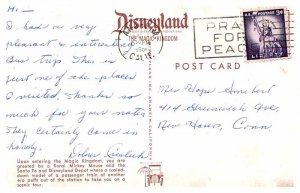 Hi —
I had a very
pleasant & interesting
Bus trip. This is
just one of the places
I visited. Thanks so
much for your notes
They certainly came in
handy.
Upon entering the Magic Kingdom, you are
greeted by a floral Mickey Mouse and the
Santa Fe and Disneyland Depot where a scaled-
down model of a passenger train of another
era puffs out of the station to take you on a
scenic tour.
Disneyland
THE MAGIC KINGDOM
PRAY
FOR
PEACE
U.S. POSTAGE 3¢
LIBERTY
POST CARD
Miss Hope
414 Greenwich Ave.
New Haven, Conn.